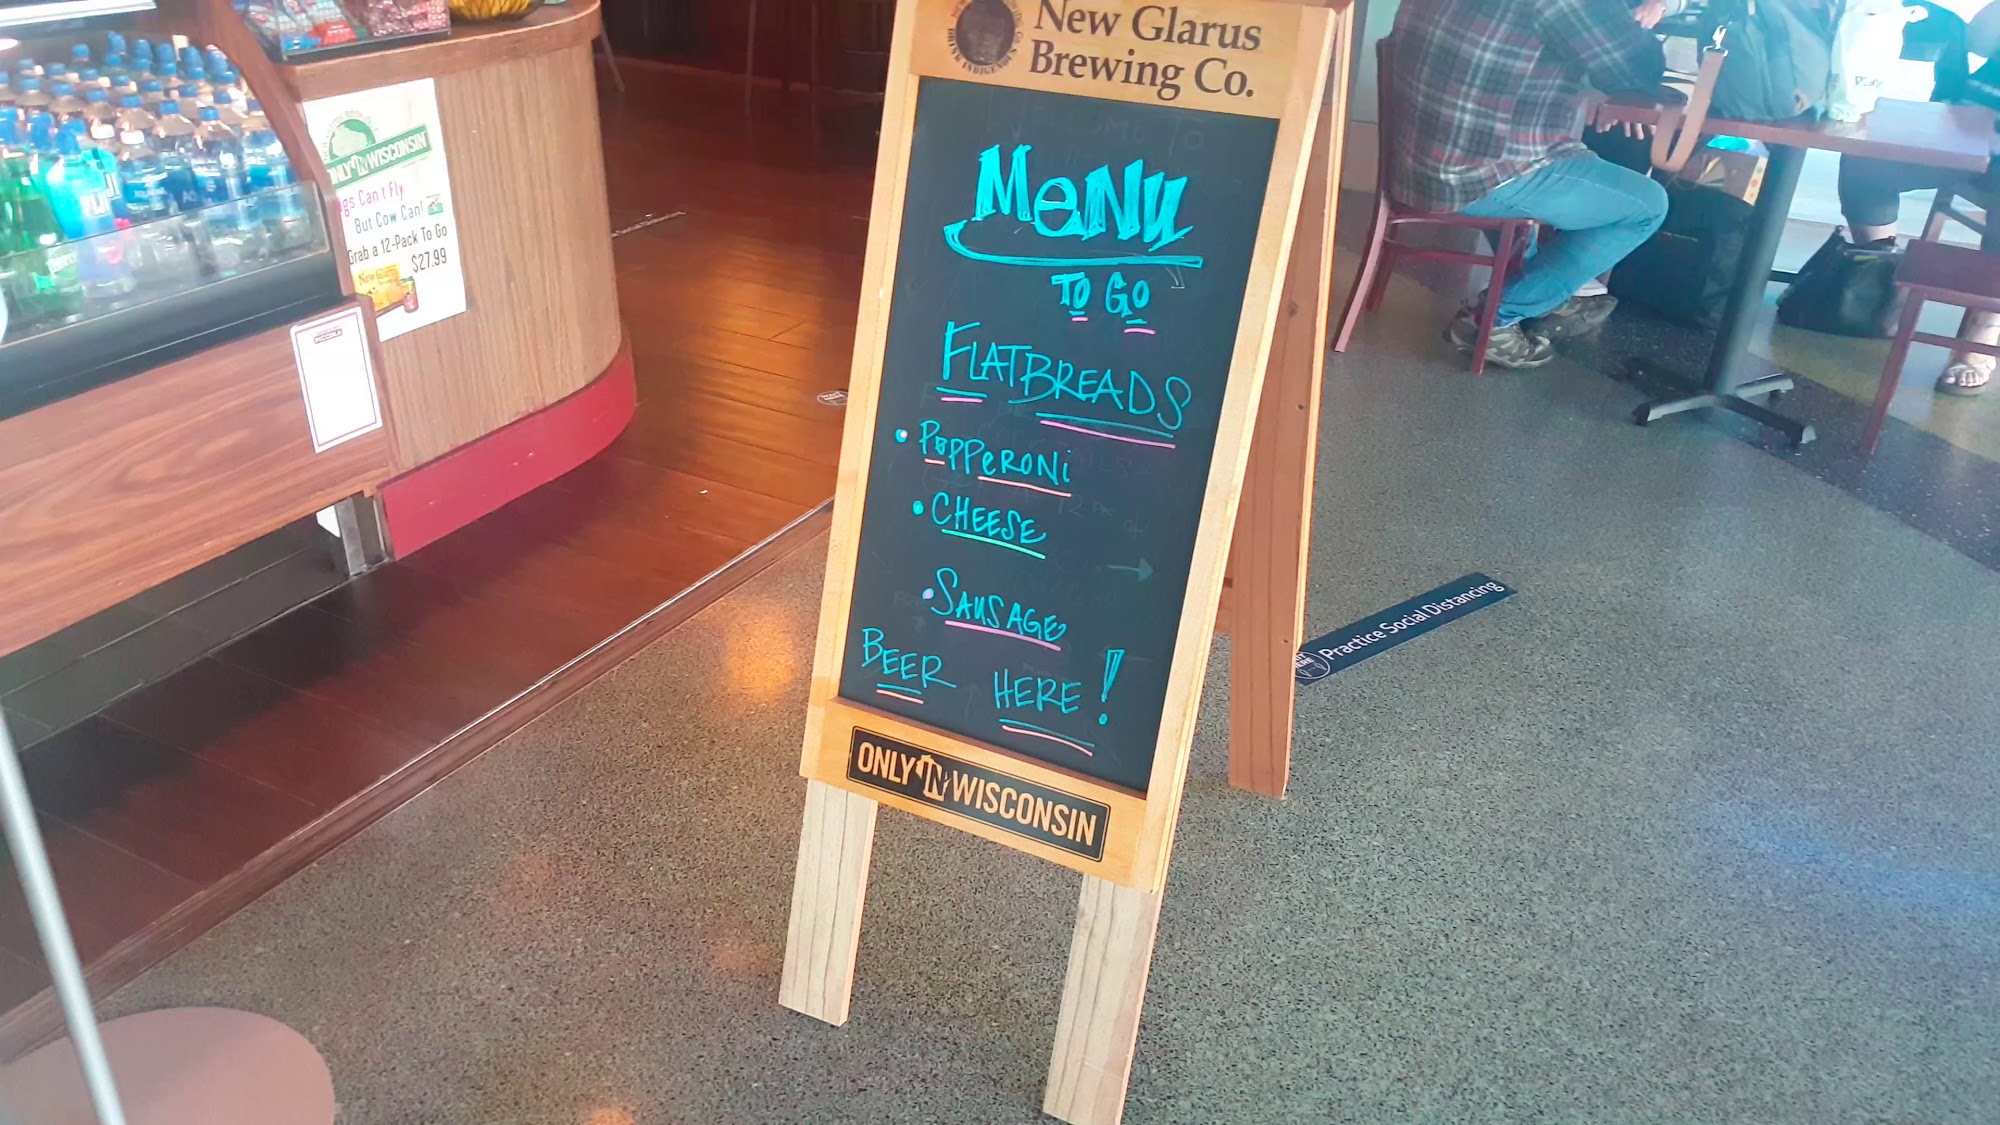 New Glarus
Brewing Co.
DRINK INDIGENOUS
MeNu
TO GO
FLATBREADS
• PEPPERONi
• CHEESE
• SAUSAGE
BEER HERE!
ONLY IN WISCONSIN
ONLY IN WISCONSIN
Can't Fly
But Cow Can!
Grab a 12-Pack To Go
$27.99
New Glarus
Practice Social Distancing
Play